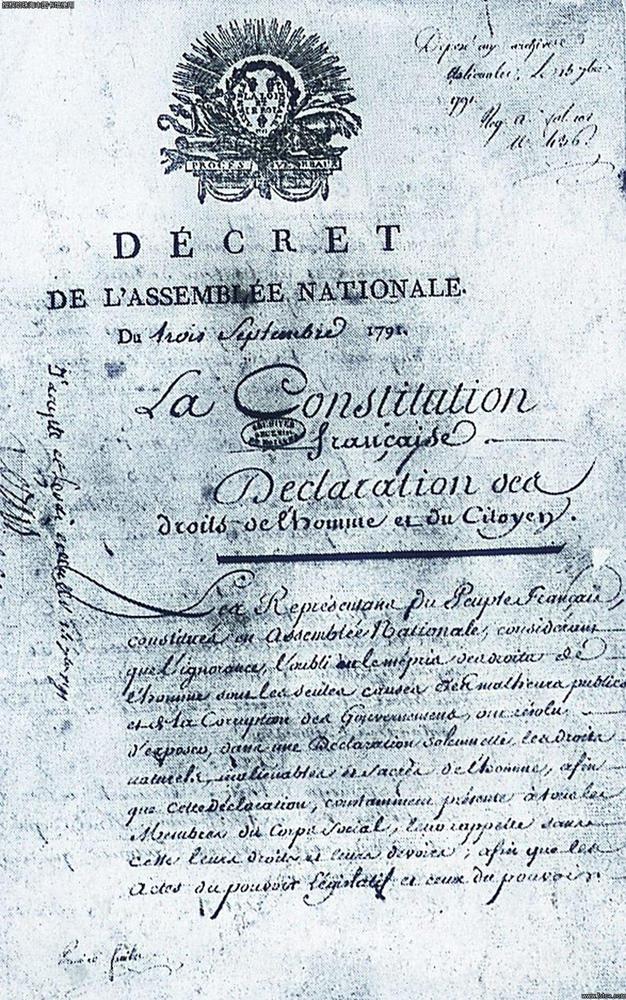 Déposé aux archives
nationales, le 15 7bre
1791.
Reg. A fol. 101
N. 426
LA LOI
ET
LE ROI
PROCES VERBAUX
DÉCRET
DE L'ASSEMBLÉE NATIONALE.
Du trois Septembre 1791.
La Constitution
ARCHIVES
française
Déclaration des
droits de l'homme et du Citoyen.
J'accepte et ferai exécuter
Les Représentans du Peuple Français,
constitués en Assemblée Nationale, considérant
que l'ignorance, l'oubli ou le mépris des droits de
l'homme sont les seules causes des malheurs publics
et de la Corruption des Gouvernemens, ont résolu
d'exposer, dans une Déclaration Solemnelle, les droits
naturels, inaliénables et sacrés de l'homme, afin
que cette déclaration, constamment présente à tous les
Membres du Corps Social, leur rappelle sans
cesse leurs droits et leurs devoirs ; afin que les
Actes du pouvoir législatif et ceux du pouvoir
www.fotoe.com